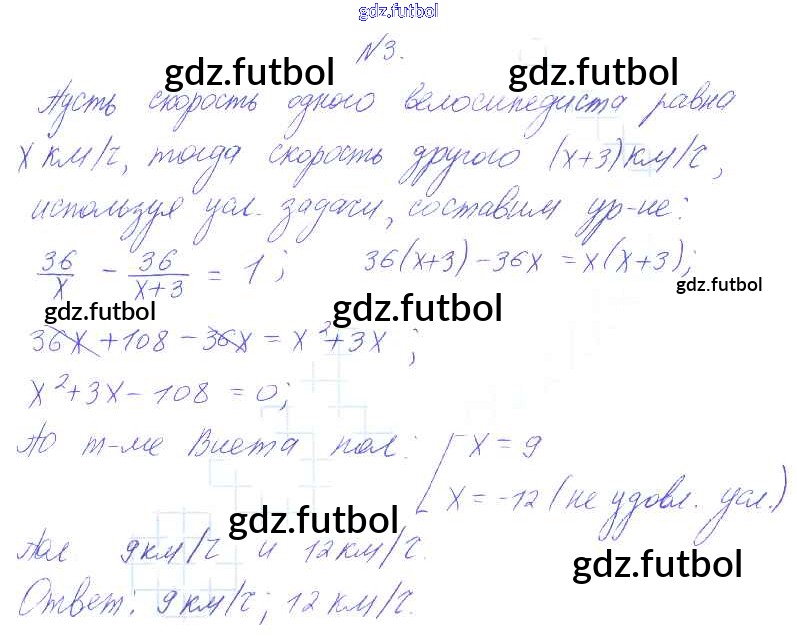 gdz.futbol
N3.
gdz.futbol gdz.futbol
Пусть скорость одного велосипедиста равна
x км/ч, тогда скорость другого (x+3)км/ч,
используя усл. задачи, составим ур-не:
36/x - 36/(x+3) = 1; 36(x+3)-36x = x(x+3);
gdz.futbol gdz.futbol gdz.futbol
36x+108-36x = x²+3x;
x²+3x-108 = 0;
По т-ме Виета пол: [ x = 9
x = -12 (не удовл. усл.)
gdz.futbol
Пол 9км/ч и 12км/ч.
gdz.futbol
Ответ: 9км/ч; 12км/ч.